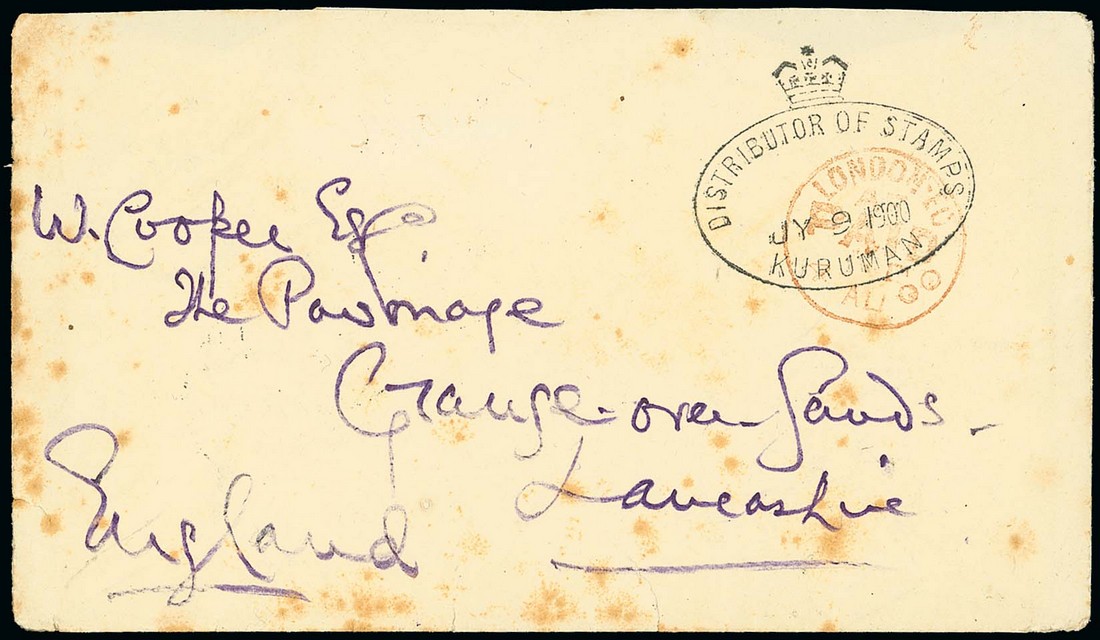 DISTRIBUTOR OF STAMPS
JY 9 1900
KURUMAN
LONDON · E.C
AU 00
W. Cooper Esq.
The Parsonage
Grange-over-Sands.
Lancashire
England